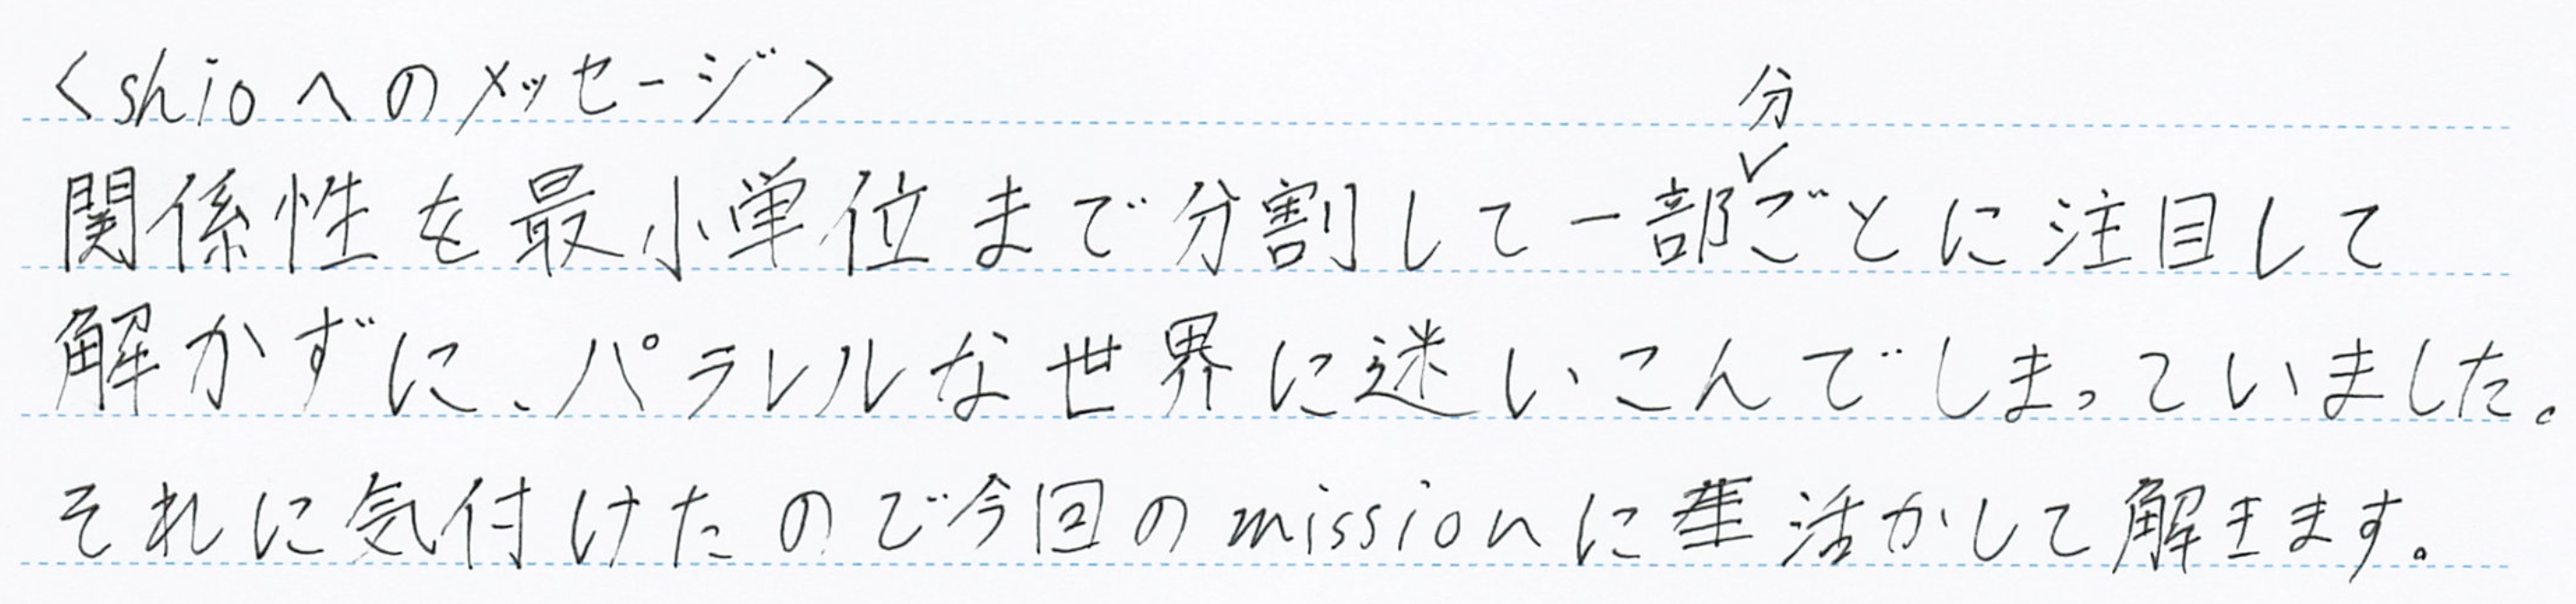 <shioへのメッセージ>
関係性を最小単位まで分割して一部分ごとに注目して
解かずに、パラレルな世界に迷いこんでしまっていました。
それに気付けたので今回のmissionに活かして解きます。